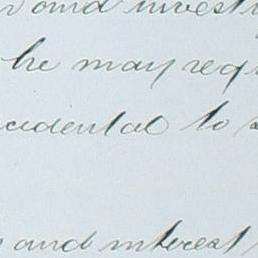 and invest
he may requ
ccidental to
and interest